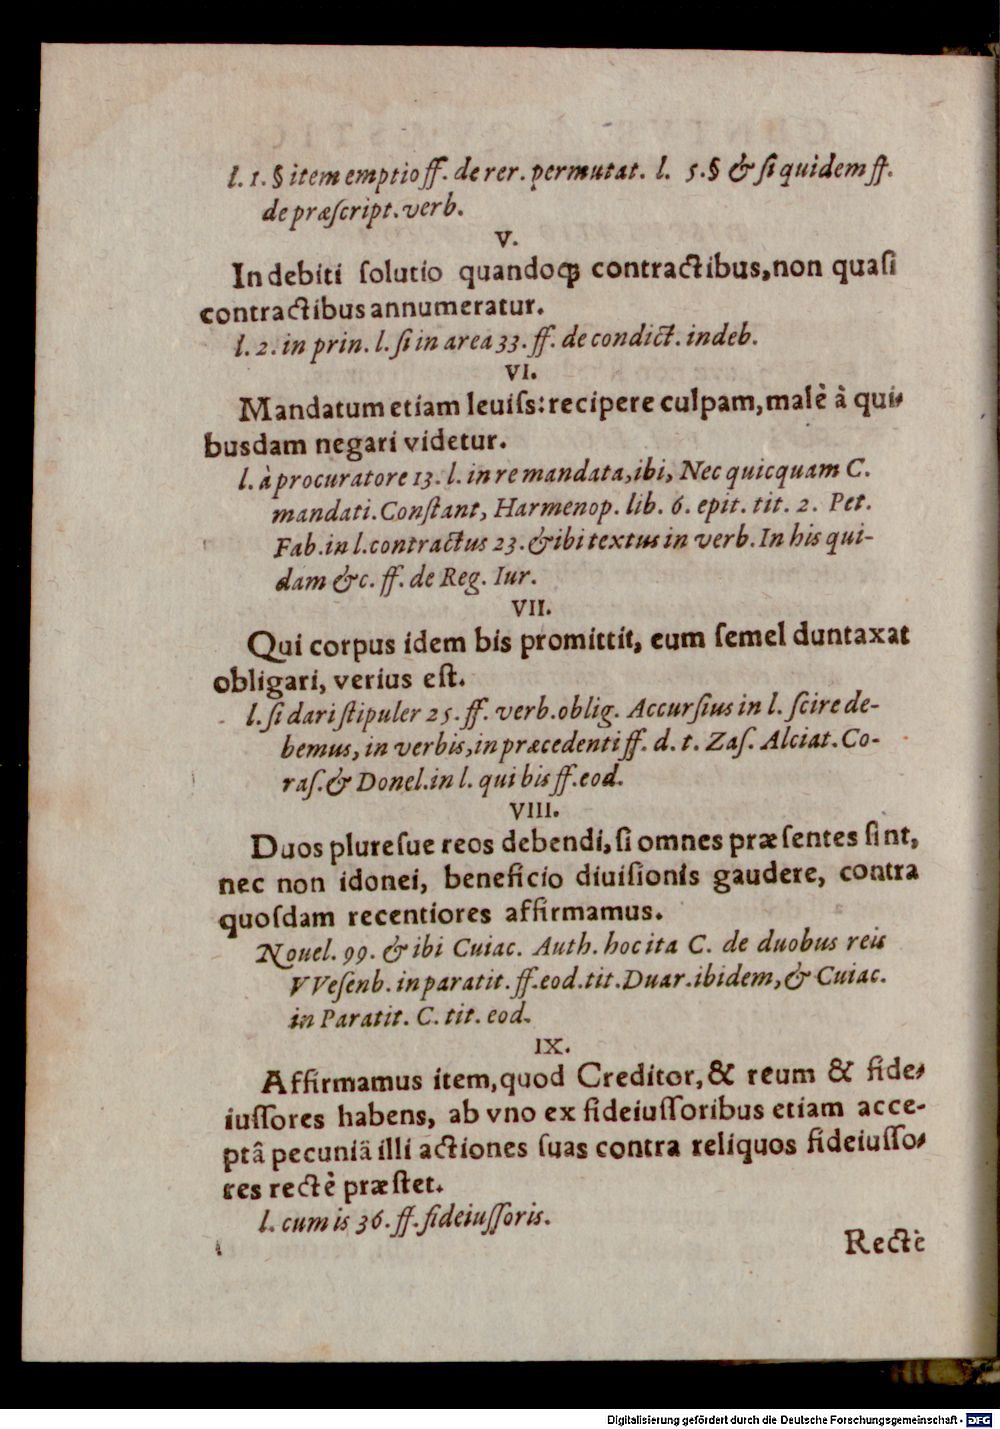 l. 1. § item emptio ff. de rer. permutat. l. 5. § & ſi quidem ff.
de præſcript. verb.
V.
Indebiti ſolutio quandoqꝫ contractibus, non quaſi
contractibus annumeratur.
l. 2. in prin. l. ſi in area 33. ff. de condict. indeb.
VI.
Mandatum etiam leuiſs: recipere culpam, malè à qui-
busdam negari videtur.
l. à procuratore 13. l. in re mandata, ibi, Nec quicquam C.
mandati. Conſtant, Harmenop. lib. 6. epit. tit. 2. Pet.
Fab. in l. contractus 23. & ibi textus in verb. In his qui-
dam &c. ff. de Reg. Iur.
VII.
Qui corpus idem bis promittit, eum ſemel duntaxat
obligari, verius eſt.
l. ſi dari ſtipuler 25. ff. verb. oblig. Accurſius in l. ſcire de-
bemus, in verbis, in præcedenti ff. d. t. Zaſ. Alciat. Co-
raſ. & Donel. in l. qui bis ff. eod.
VIII.
Duos plureſue reos debendi, ſi omnes præſentes ſint,
nec non idonei, beneficio diuiſionis gaudere, contra
quoſdam recentiores affirmamus.
Nouel. 99. & ibi Cuiac. Auth. hoc ita C. de duobus reis
VVeſenb. in paratit. ff. eod. tit. Duar. ibidem, & Cuiac.
in Paratit. C. tit. eod.
IX.
Affirmamus item, quod Creditor, & reum & fide-
iuſſores habens, ab vno ex fideiuſſoribus etiam acce-
ptâ pecuniâ illi actiones ſuas contra reliquos fideiuſſo-
res rectè præſtet.
l. cum is 36. ff. fideiuſſoris.
Rectè
Digitalisierung gefördert durch die Deutsche Forschungsgemeinschaft - DFG